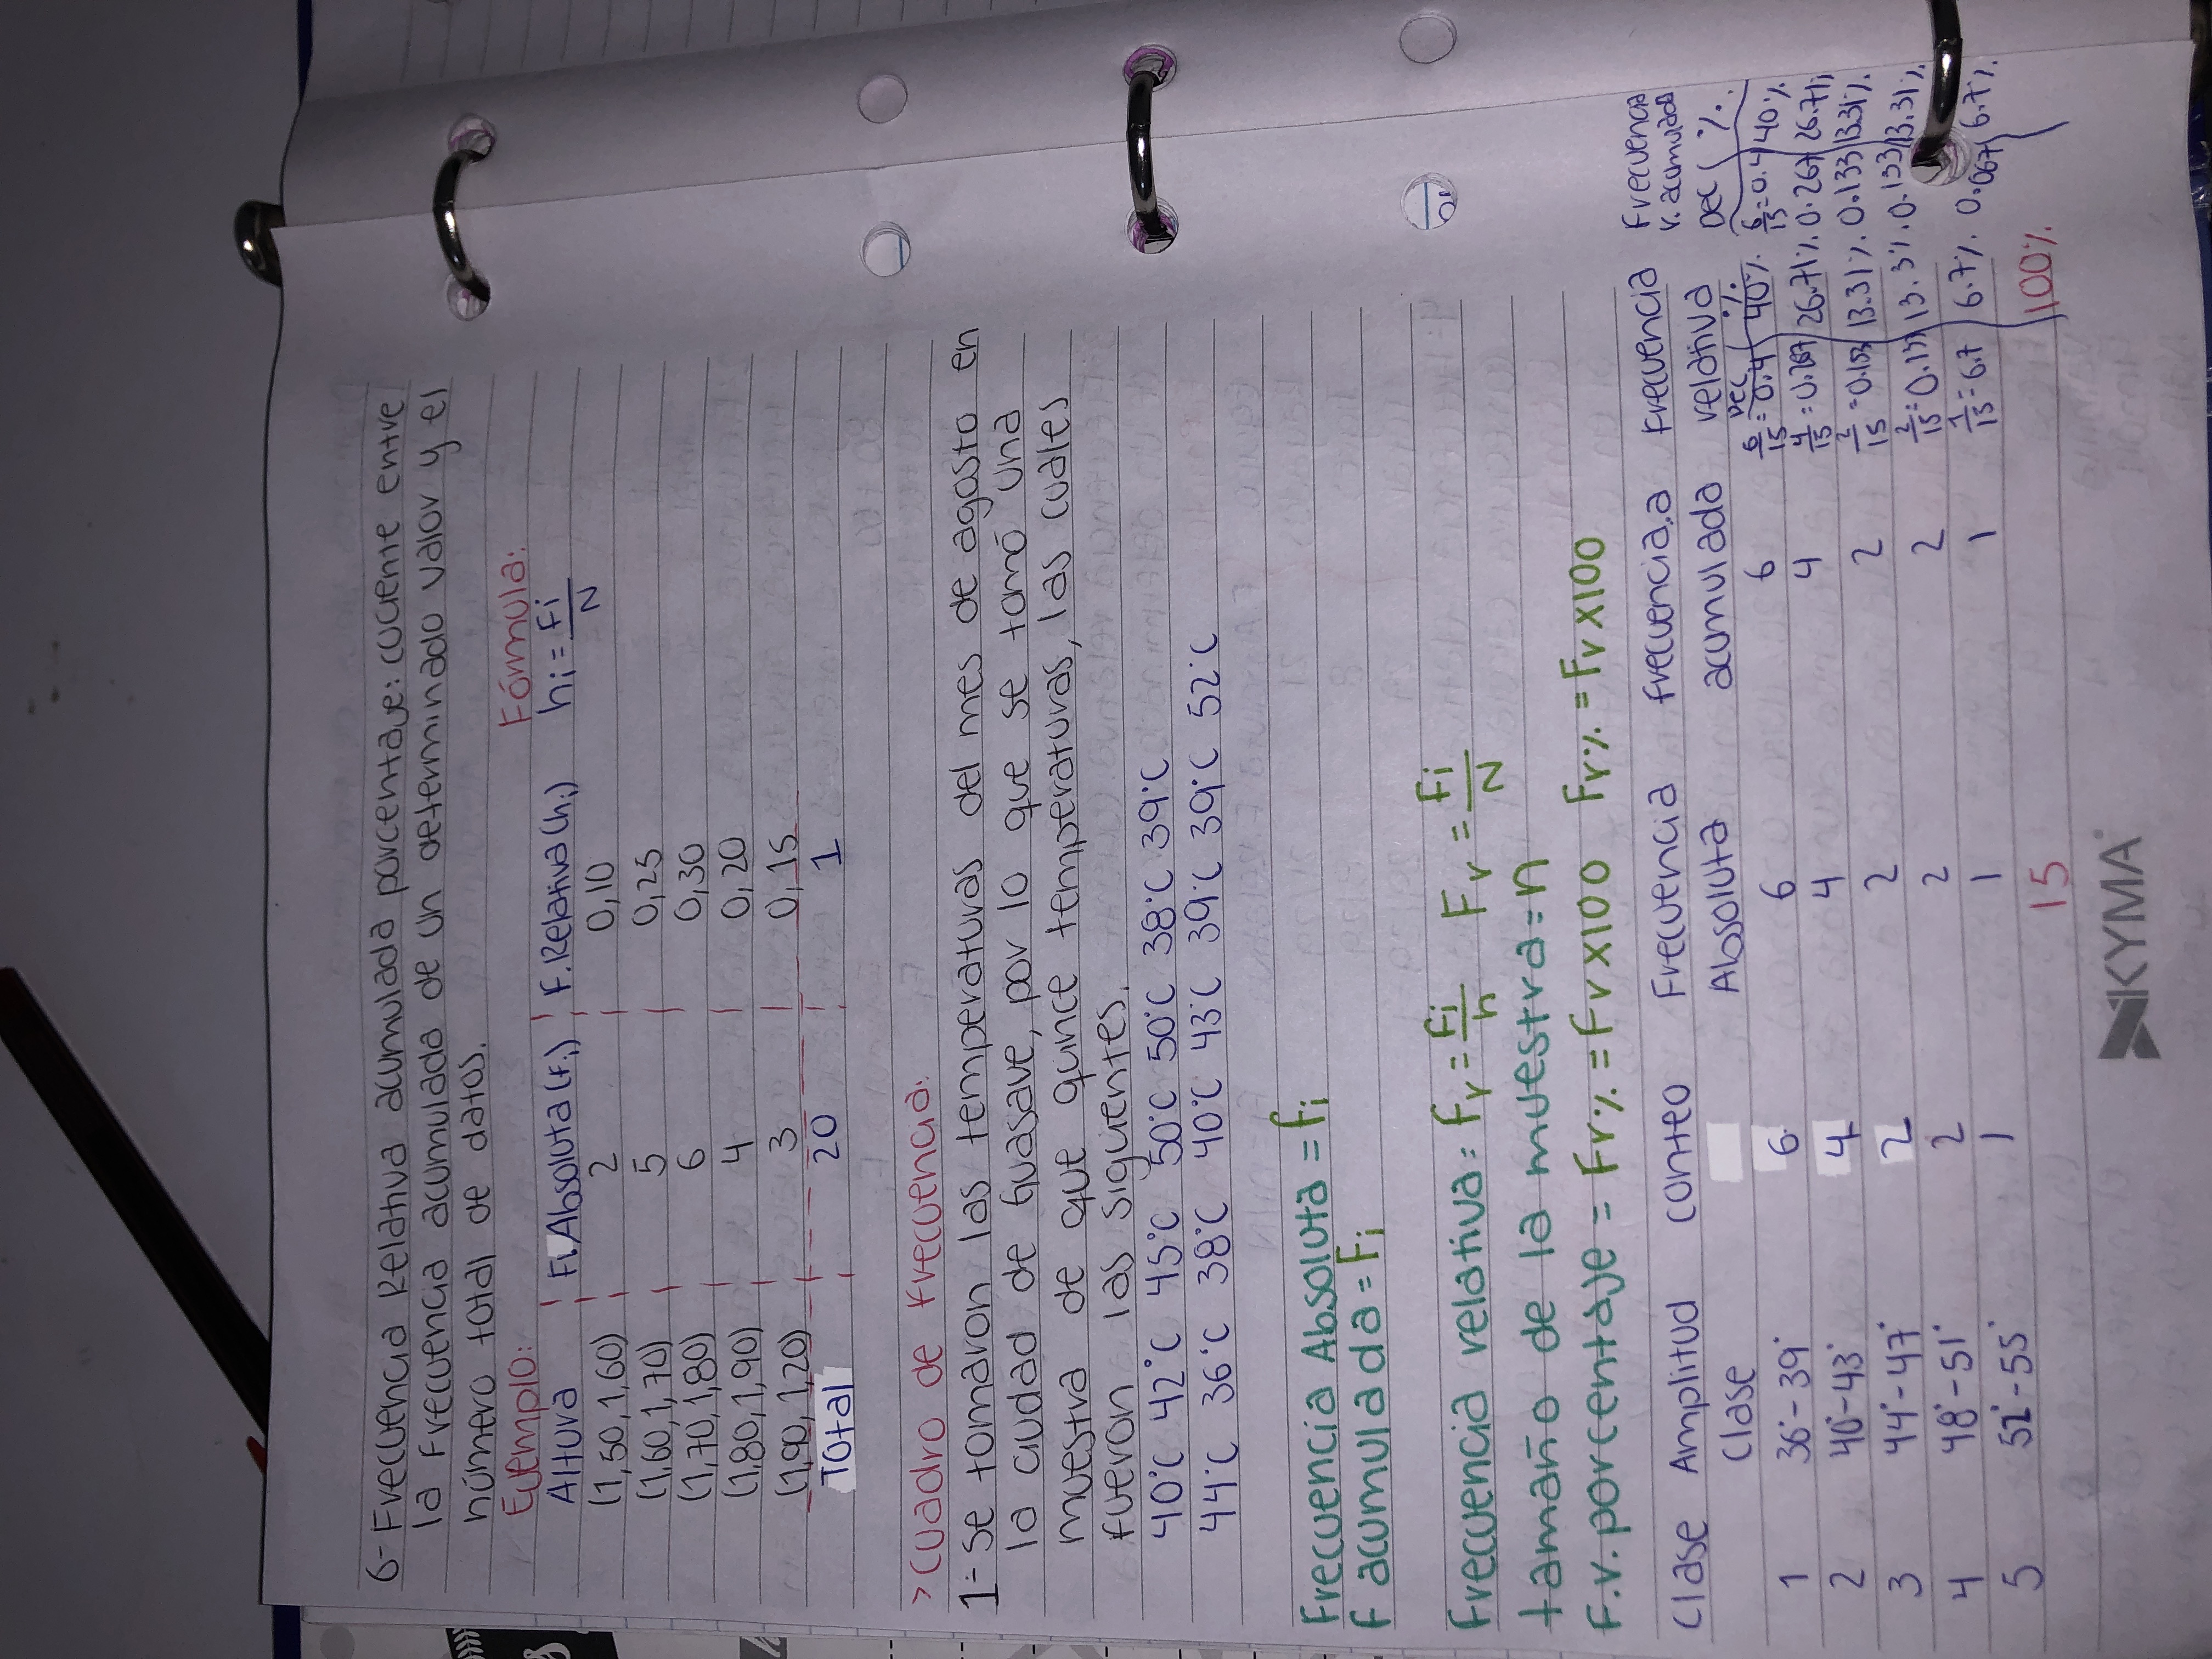 6- Frecuencia Relativa acumulada porcentave: cuciente entre
la frecuencia acumulada de un determinado valor y el
número total de datos.
Ejemplo: Fórmula:
Altura Fr. Absoluta (fi) F. Relativa (hi) hi = Fi/N
(1,50, 1,60) 2 0,10
(1,60, 1,70) 5 0,25
(1,70, 1,80) 6 0,30
(1,80, 1,90) 4 0,20
(1,90, 1,20) 3 0,15
Total 20 1
> Cuadro de frecuencia:
1- Se tomaron las temperaturas del mes de agosto en
la ciudad de Guasave, por lo que se tomó una
muestra de que quince temperaturas, las cuales
fueron las siguientes.
40°C 42°C 45°C 50°C 50°C 50°C 38°C 38°C 39°C
44°C 36°C 38°C 40°C 40°C 43°C 39°C 39°C 52°C
Frecuencia Absoluta = fi
F acumulada = Fi
Frecuencia relativa: fr = Fi/n Fr = Fi/N
tamaño de la muestra = n
F.r. porcentaje = Fr% = Fr x100 Fr% = Fr x100
Clase Amplitud Clase Conteo Frecuencia Absoluta frecuencia,a acumulada Frecuencia relativa Frecuencia r. acumulada
Dec % Dec %
1 36°-39° 6 6 6 6/15 = 0.4 40% 6/15 = 0.4 40%
2 40°-43° 4 4 4 4/15 = 0.267 26.71% 0.267 26.71%
3 44°-47° 2 2 2 2/15 = 0.133 13.31% 0.133 13.31%
4 48°-51° 2 2 2 2/15 = 0.133 13.3% 0.133 13.31%
5 52°-55° 1 1 1 1/15 = 6.7 6.7% 0.067 6.7%
15 100%
KYMA